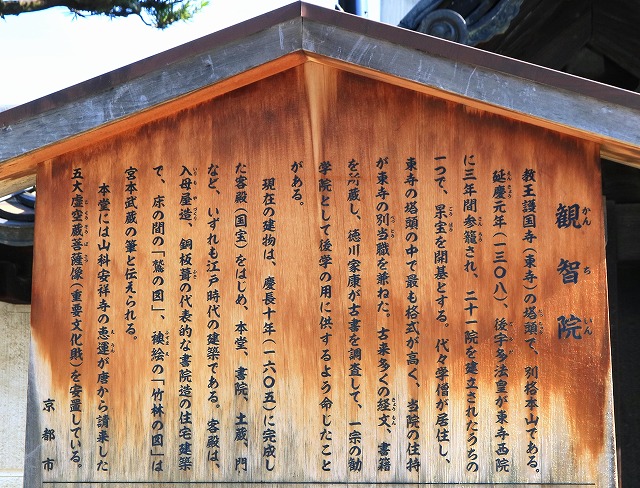 観智院
かんちいん
教王護国寺（東寺）の塔頭で、別格本山である。
延慶元年（一三〇八）、後宇多法皇が東寺西院
に三年間参籠され、二十一院を建立されたうちの
一つで、杲宝を開基とする。代々学僧が居住し、
東寺の塔頭の中で最も格式が高く、当院の住持
が東寺の別当職を兼ねた。古来多くの経文、書籍
を所蔵し、徳川家康が古書を調査して、一宗の勧
学院として後学の用に供するよう命じたこと
がある。
現在の建物は、慶長十年（一六〇五）に完成し
た客殿（国宝）をはじめ、本堂、書院、土蔵、門
など、いずれも江戸時代の建築である。客殿は、
入母屋造、銅板葺の代表的な書院造の住宅建築
で、床の間の「鷲の図」、襖絵の「竹林の図」は
宮本武蔵の筆と伝えられる。
本堂には山科安祥寺の恵運が唐から請来した
五大虚空蔵菩薩像（重要文化財）を安置している。
京都市